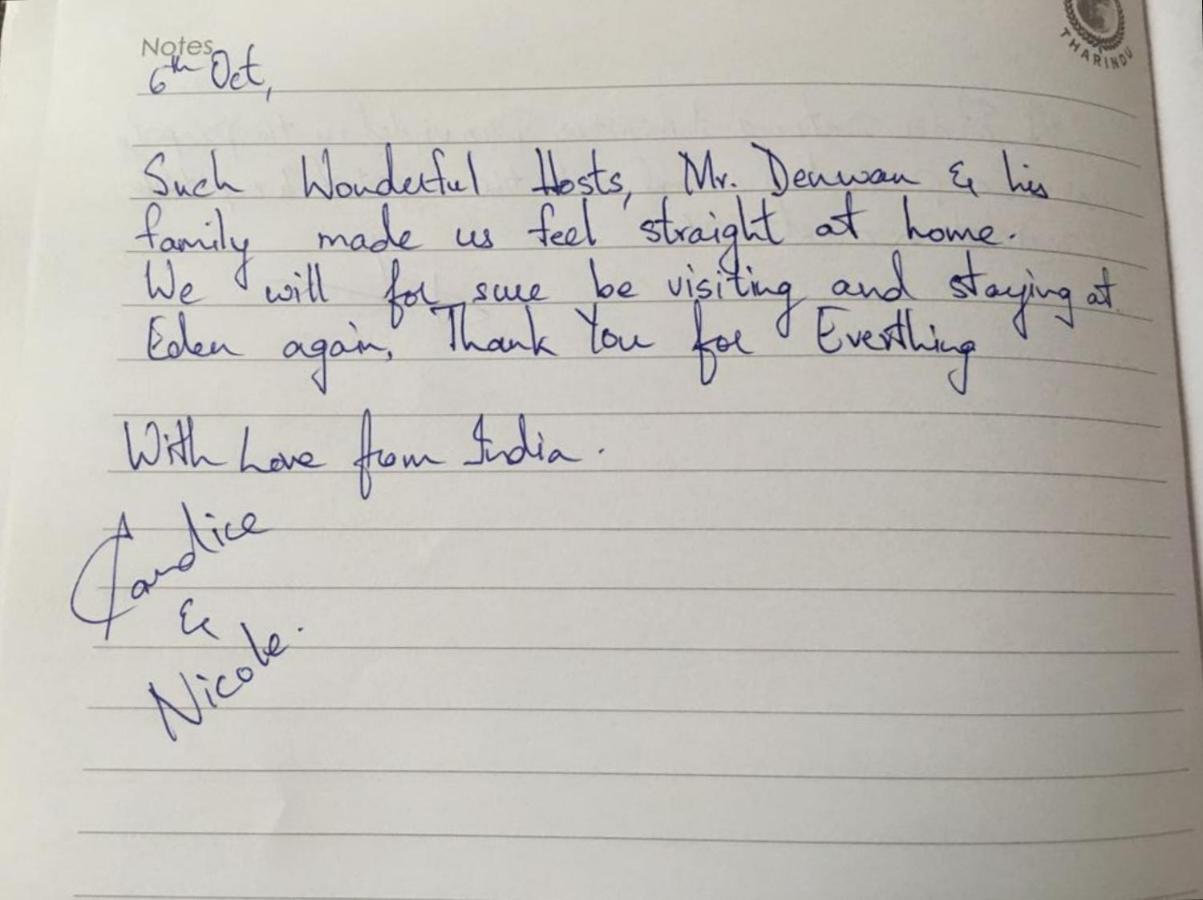 THARINDU
Notes
6th Oct,
Such Wonderful Hosts, Mr. Denwan & his
family made us feel straight at home.
We will for sure be visiting and staying at
Eden again, Thank You for Everthing
With Love from India.
Candice
&
Nicole.